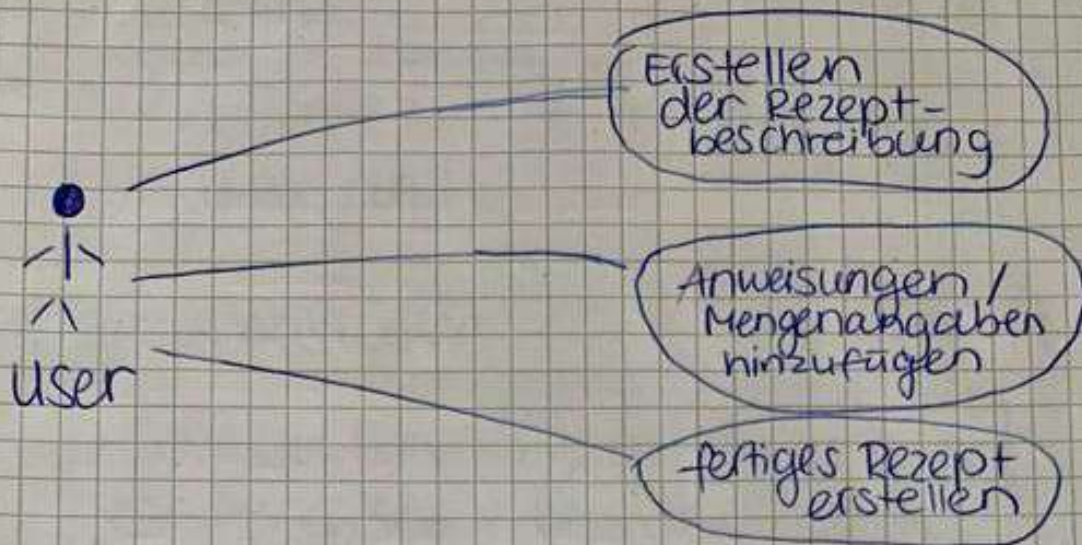 Erstellen
der Rezept-
beschreibung
user
Anweisungen /
Mengenangaben
hinzufügen
fertiges Rezept
erstellen